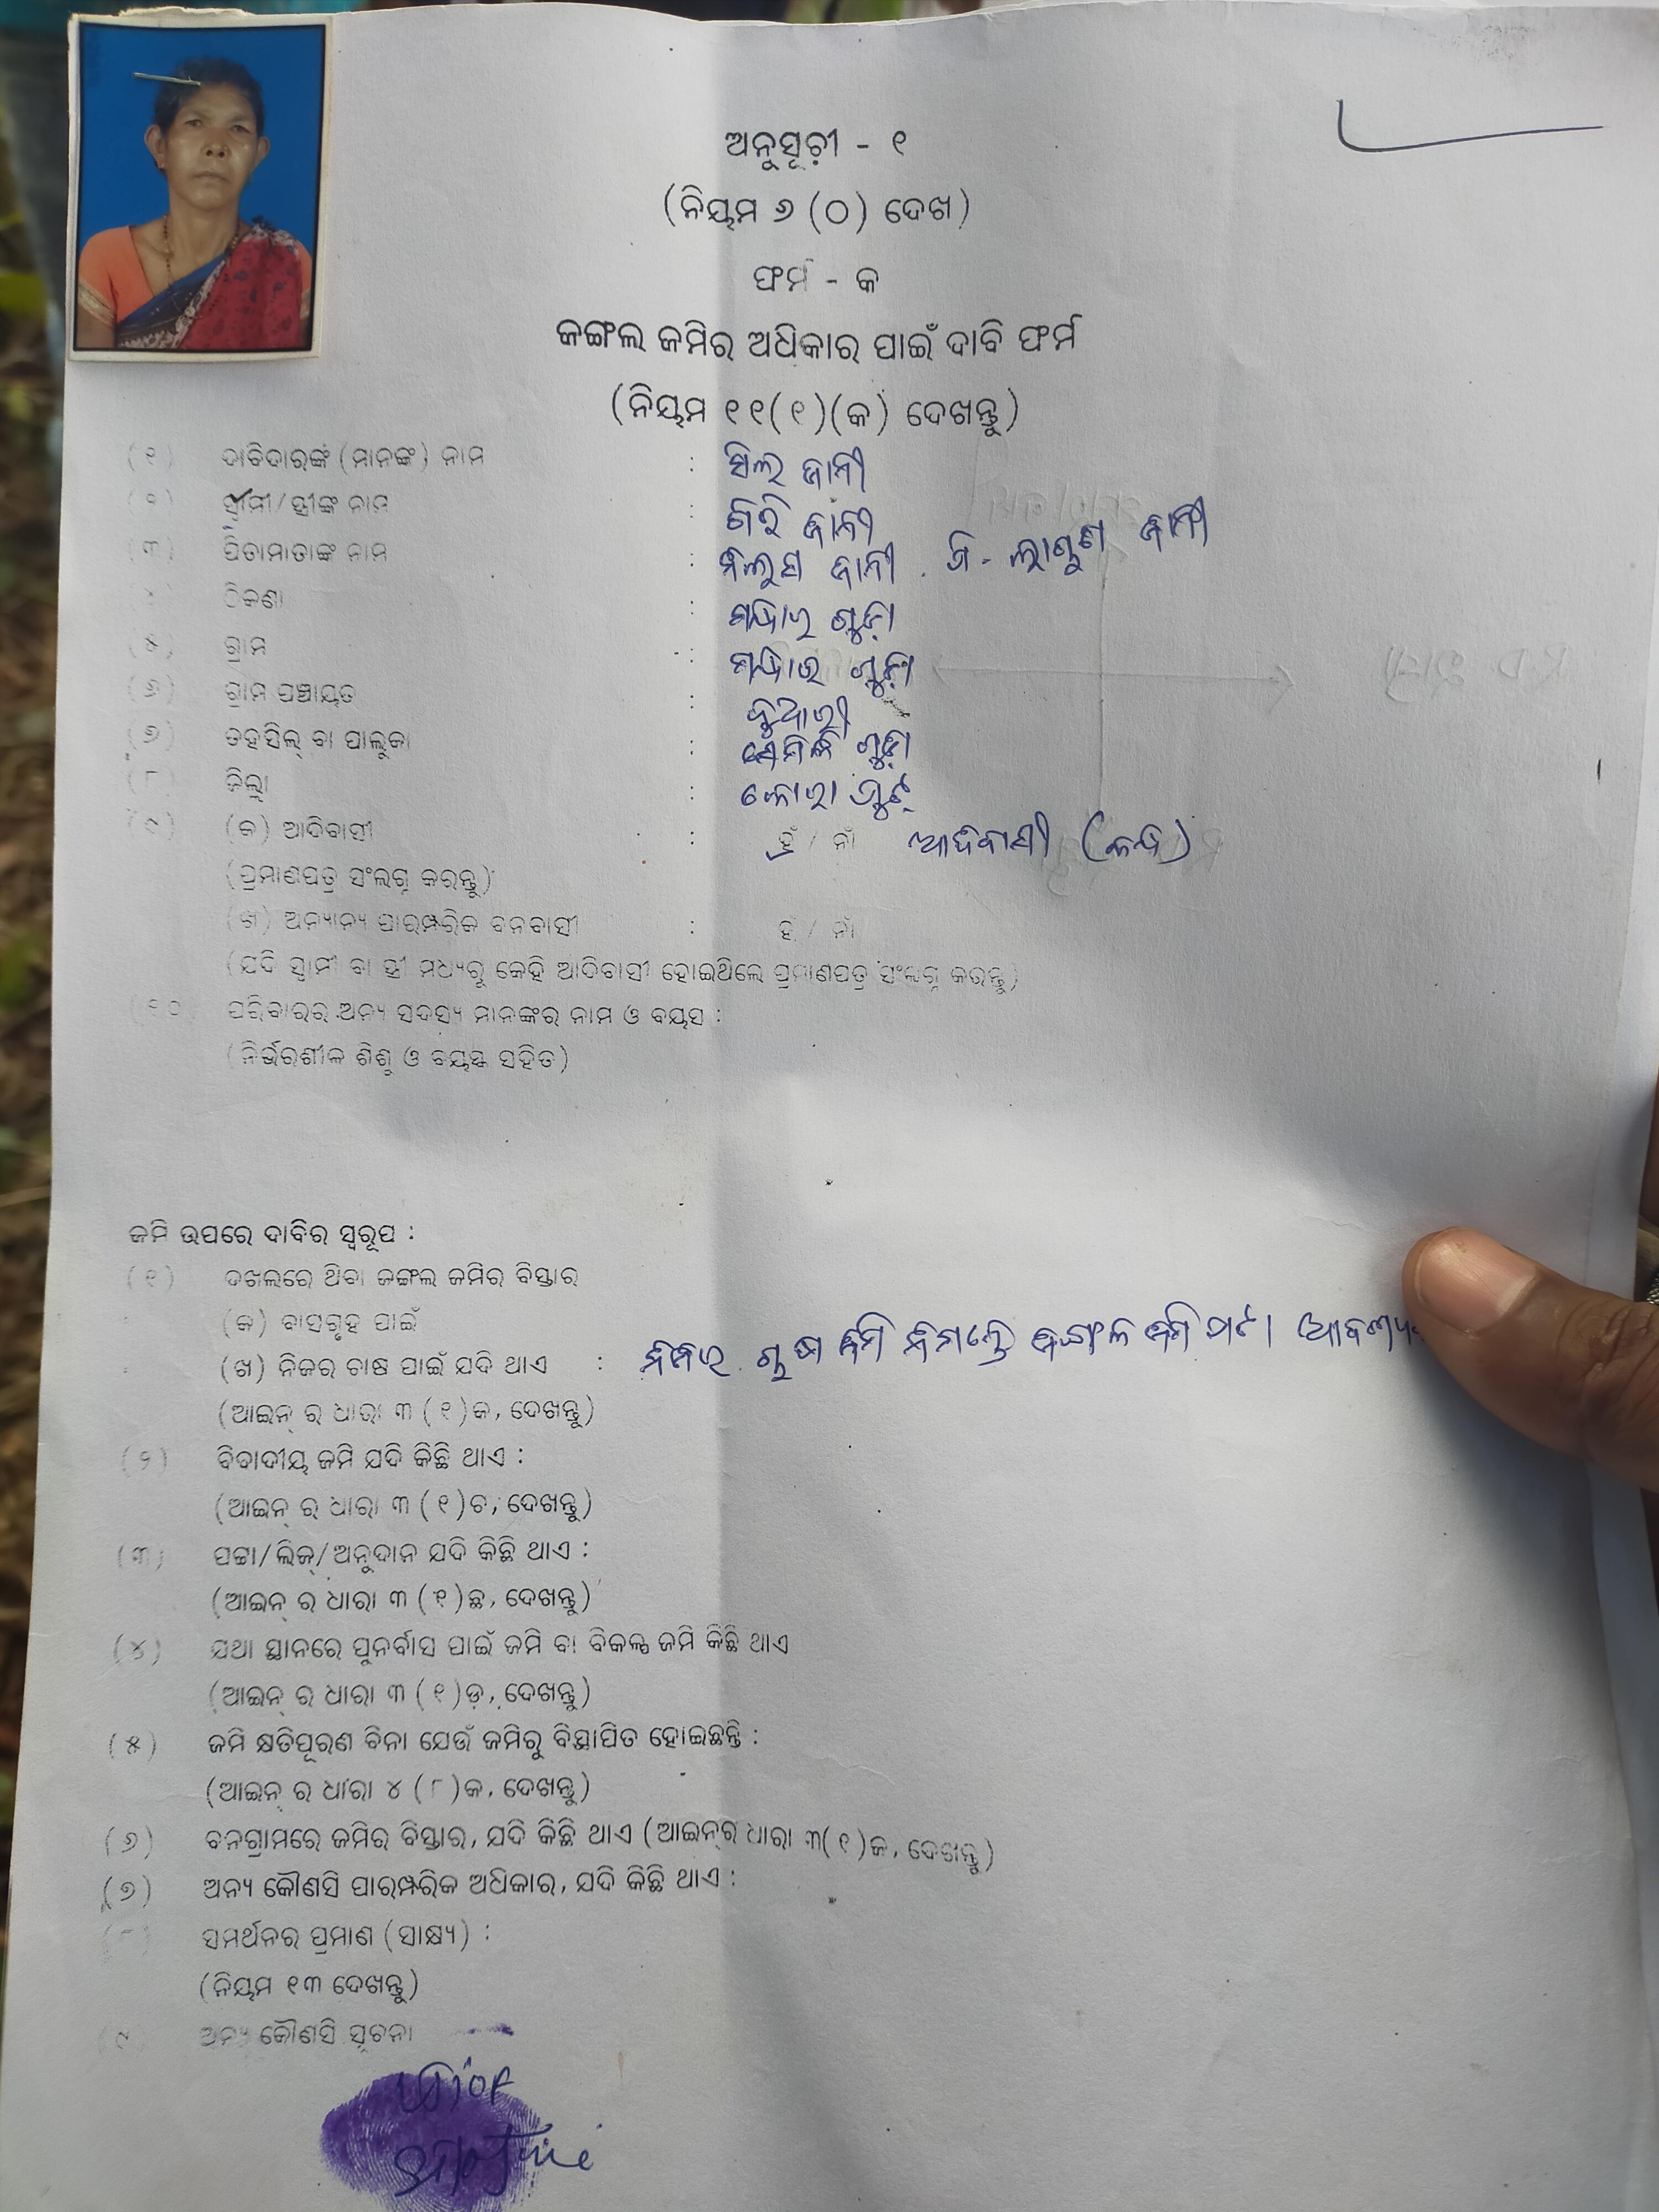 ଅନୁସୂଚୀ - ୧
(ନିୟମ ୬ (୦) ଦେଖ)
ଫର୍ମ - କ
ଜଙ୍ଗଲ ଜମିର ଅଧିକାର ପାଇଁ ଦାବି ଫର୍ମ
(ନିୟମ ୧୧(୧)(କ) ଦେଖନ୍ତୁ)
(୧) ଦାବିଦାରଙ୍କ (ମାନଙ୍କ) ନାମ : ସିଲ ଜାନୀ
(୨) ସ୍ଵାମୀ/ସ୍ତ୍ରୀଙ୍କ ନାମ : ଗିରି ଜାନୀ
(୩) ପିତାମାତାଙ୍କ ନାମ : ଜାନୀ ଜାନୀ
ଠିକଣା :
(୫) ଗ୍ରାମ :
(୬) ଗ୍ରାମ ପଞ୍ଚାୟତ :
(୭) ତହସିଲ୍ ବା ପାଲୁକା :
(୮) ଜିଲ୍ଲା : କୋରାପୁଟ୍
(୯) (କ) ଆଦିବାସୀ : ହଁ / ନାଁ ଆଦିବାସୀ
(ପ୍ରମାଣପତ୍ର ସଂଲଗ୍ନ କରନ୍ତୁ)
(ଖ) ଅନ୍ୟାନ୍ୟ ପାରମ୍ପରିକ ବନବାସୀ : ହଁ / ନାଁ
(ଯଦି ସ୍ଵାମୀ ବା ସ୍ତ୍ରୀ ମଧ୍ୟରୁ କେହି ଆଦିବାସୀ ହୋଇଥିଲେ ପ୍ରମାଣପତ୍ର ସଂଲଗ୍ନ କରନ୍ତୁ)
(୧୦) ପରିବାରର ଅନ୍ୟ ସଦସ୍ୟ ମାନଙ୍କର ନାମ ଓ ବୟସ :
(ନିର୍ଭରଶୀଳ ଶିଶୁ ଓ ବୟସ୍କ ସହିତ)
ଜମି ଉପରେ ଦାବିର ସ୍ଵରୂପ :
(୧) ଦଖଲରେ ଥିବା ଜଙ୍ଗଲ ଜମିର ବିସ୍ତାର
(କ) ବାସଗୃହ ପାଇଁ
(ଖ) ନିଜର ଚାଷ ପାଇଁ ଯଦି ଥାଏ : ନିଜର ଚାଷ ଜମି ନିମନ୍ତେ ଜଙ୍ଗଲ ଜମି ପଟା
(ଆଇନ୍ ର ଧାରା ୩ (୧)କ, ଦେଖନ୍ତୁ)
(୨) ବିବାଦୀୟ ଜମି ଯଦି କିଛି ଥାଏ :
(ଆଇନ୍ ର ଧାରା ୩ (୧)ଚ, ଦେଖନ୍ତୁ)
(୩) ପଟ୍ଟା/ଲିଜ୍/ଅନୁଦାନ ଯଦି କିଛି ଥାଏ :
(ଆଇନ୍ ର ଧାରା ୩ (୧)ଛ, ଦେଖନ୍ତୁ)
(୪) ଯଥା ସ୍ଥାନରେ ପୁନର୍ବାସ ପାଇଁ ଜମି ବା ବିକଳ୍ପ ଜମି କିଛି ଥାଏ
(ଆଇନ୍ ର ଧାରା ୩ (୧)ଡ଼, ଦେଖନ୍ତୁ)
(୫) ଜମି କ୍ଷତିପୂରଣ ବିନା ଯେଉଁ ଜମିରୁ ବିସ୍ଥାପିତ ହୋଇଛନ୍ତି :
(ଆଇନ୍ ର ଧାରା ୪ (୮)କ, ଦେଖନ୍ତୁ)
(୬) ବନଗ୍ରାମରେ ଜମିର ବିସ୍ତାର, ଯଦି କିଛି ଥାଏ (ଆଇନ୍‌ର ଧାରା ୩(୧)ଜ, ଦେଖନ୍ତୁ)
(୭) ଅନ୍ୟ କୌଣସି ପାରମ୍ପରିକ ଅଧିକାର, ଯଦି କିଛି ଥାଏ :
(୮) ସମର୍ଥନର ପ୍ରମାଣ (ସାକ୍ଷ୍ୟ) :
(ନିୟମ ୧୩ ଦେଖନ୍ତୁ)
(୯) ଅନ୍ୟ କୌଣସି ସୂଚନା